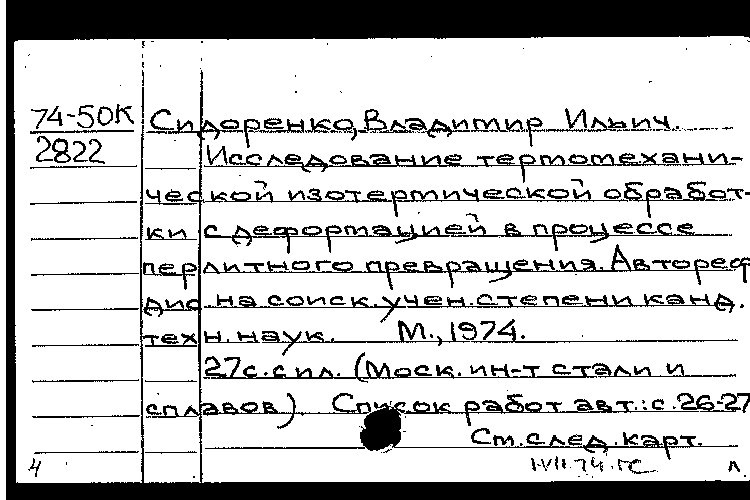 74-50К Сидоренко, Владимир Ильич.
2822 Исследование термомехани-
ческой изотермической обработ-
ки с деформацией в процессе
перлитного превращения. Автореф
дис. на соиск. учен. степени канд.
техн. наук. М., 1974.
27с. с ил. (Моск. ин-т стали и
сплавов). Список работ авт.: с. 26-27
См. след. карт.
4 1-VII.74. ГС л.